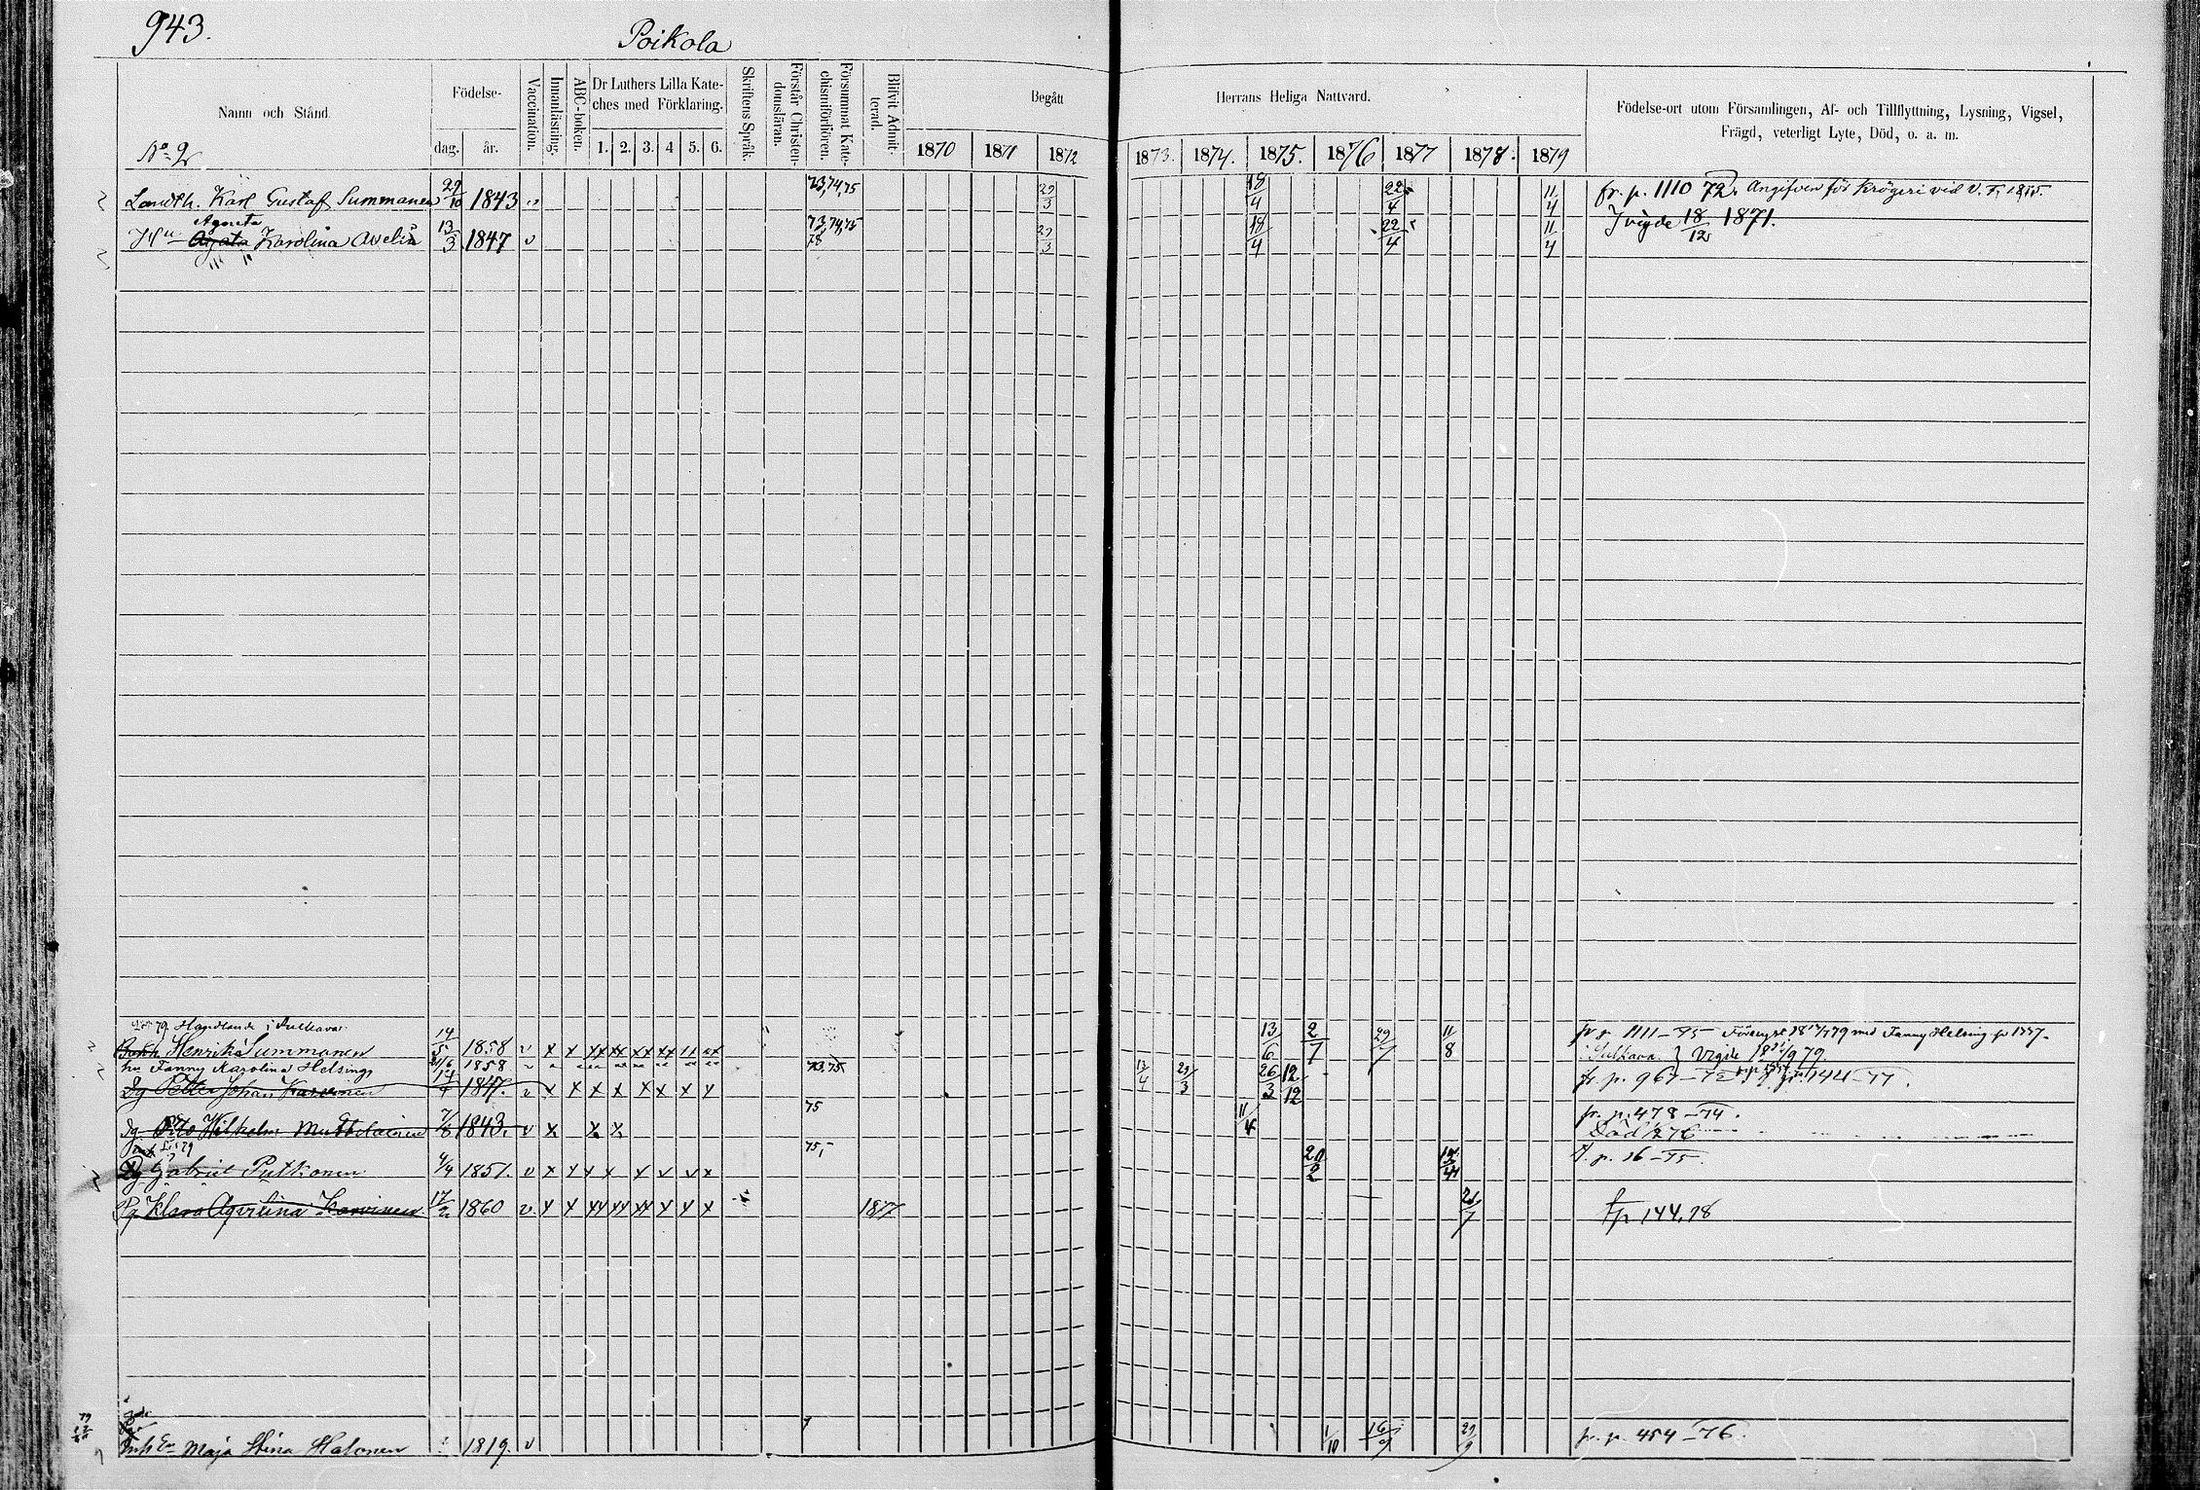 943.
Poikola
Namn och Stånd.
Födelse-
dag. år.
Vaccination.
Innanläsning.
ABC-boken.
Dr Luthers Lilla Kate-
ches med Förklaring.
1. 2. 3. 4 5. 6.
Skriftens Språk.
Förstår Christen-
domsläran.
Försummat Kate-
chismiförhören.
Blifvit Admit-
terad.
Begått Herrans Heliga Nattvard.
1870 1871 1872 1873. 1874. 1875. 1876 1877 1878. 1879
Födelse-ort utom Församlingen, Af- och Tillflyttning, Lysning, Vigsel,
Frägd, veterligt Lyte, Död, o. a. m.
No 2
Landth. Karl Gustaf Summanen 29/10 1843 v 73,74,75 29/3 18/4 22/4 11/4 fr. p. 1110 72. Angifven för krögeri vid V. T. 18
Agneta
Hu Agata Karolina Avelin 13/3 1847 v 73,74,75 78 29/3 18/4 22/4 11/4 I vigde 18/12 1871.
79 Handlande i Sulkava
Henrik Summanen 14/5 1858 v x x xx xx xx xx xx 13/6 2/7 29/7 11/8 fr p. 1111-75 med Fanny Helsing
hu Fanny Karolina Helsing 1858 73.75 Sulkava } Vigde 79
Dg Petter Johan Karvinen 1847. v x x x x x x x x 12/4 23/3 26/3 12/12 fr. p. 967-72 p. 144-77.
dg Otto Wilhelm Muttilainen 7/8 1843. v x. x x 75 11/4 fr. p. 478-74.
Död 76
Dg Gabriel Putkonen 4/4 1851. v x x x x x v v x 75, 20/2 f. p. 16-75.
Pg Klara Agvilina Karvinen 17/2 1860 v. x x xx xx xx x x x 1877 21/7 fp 144,78
Enk Maja Stina Halonen 1819. v 1/10 16/9 29/9 fr. p. 454-76.